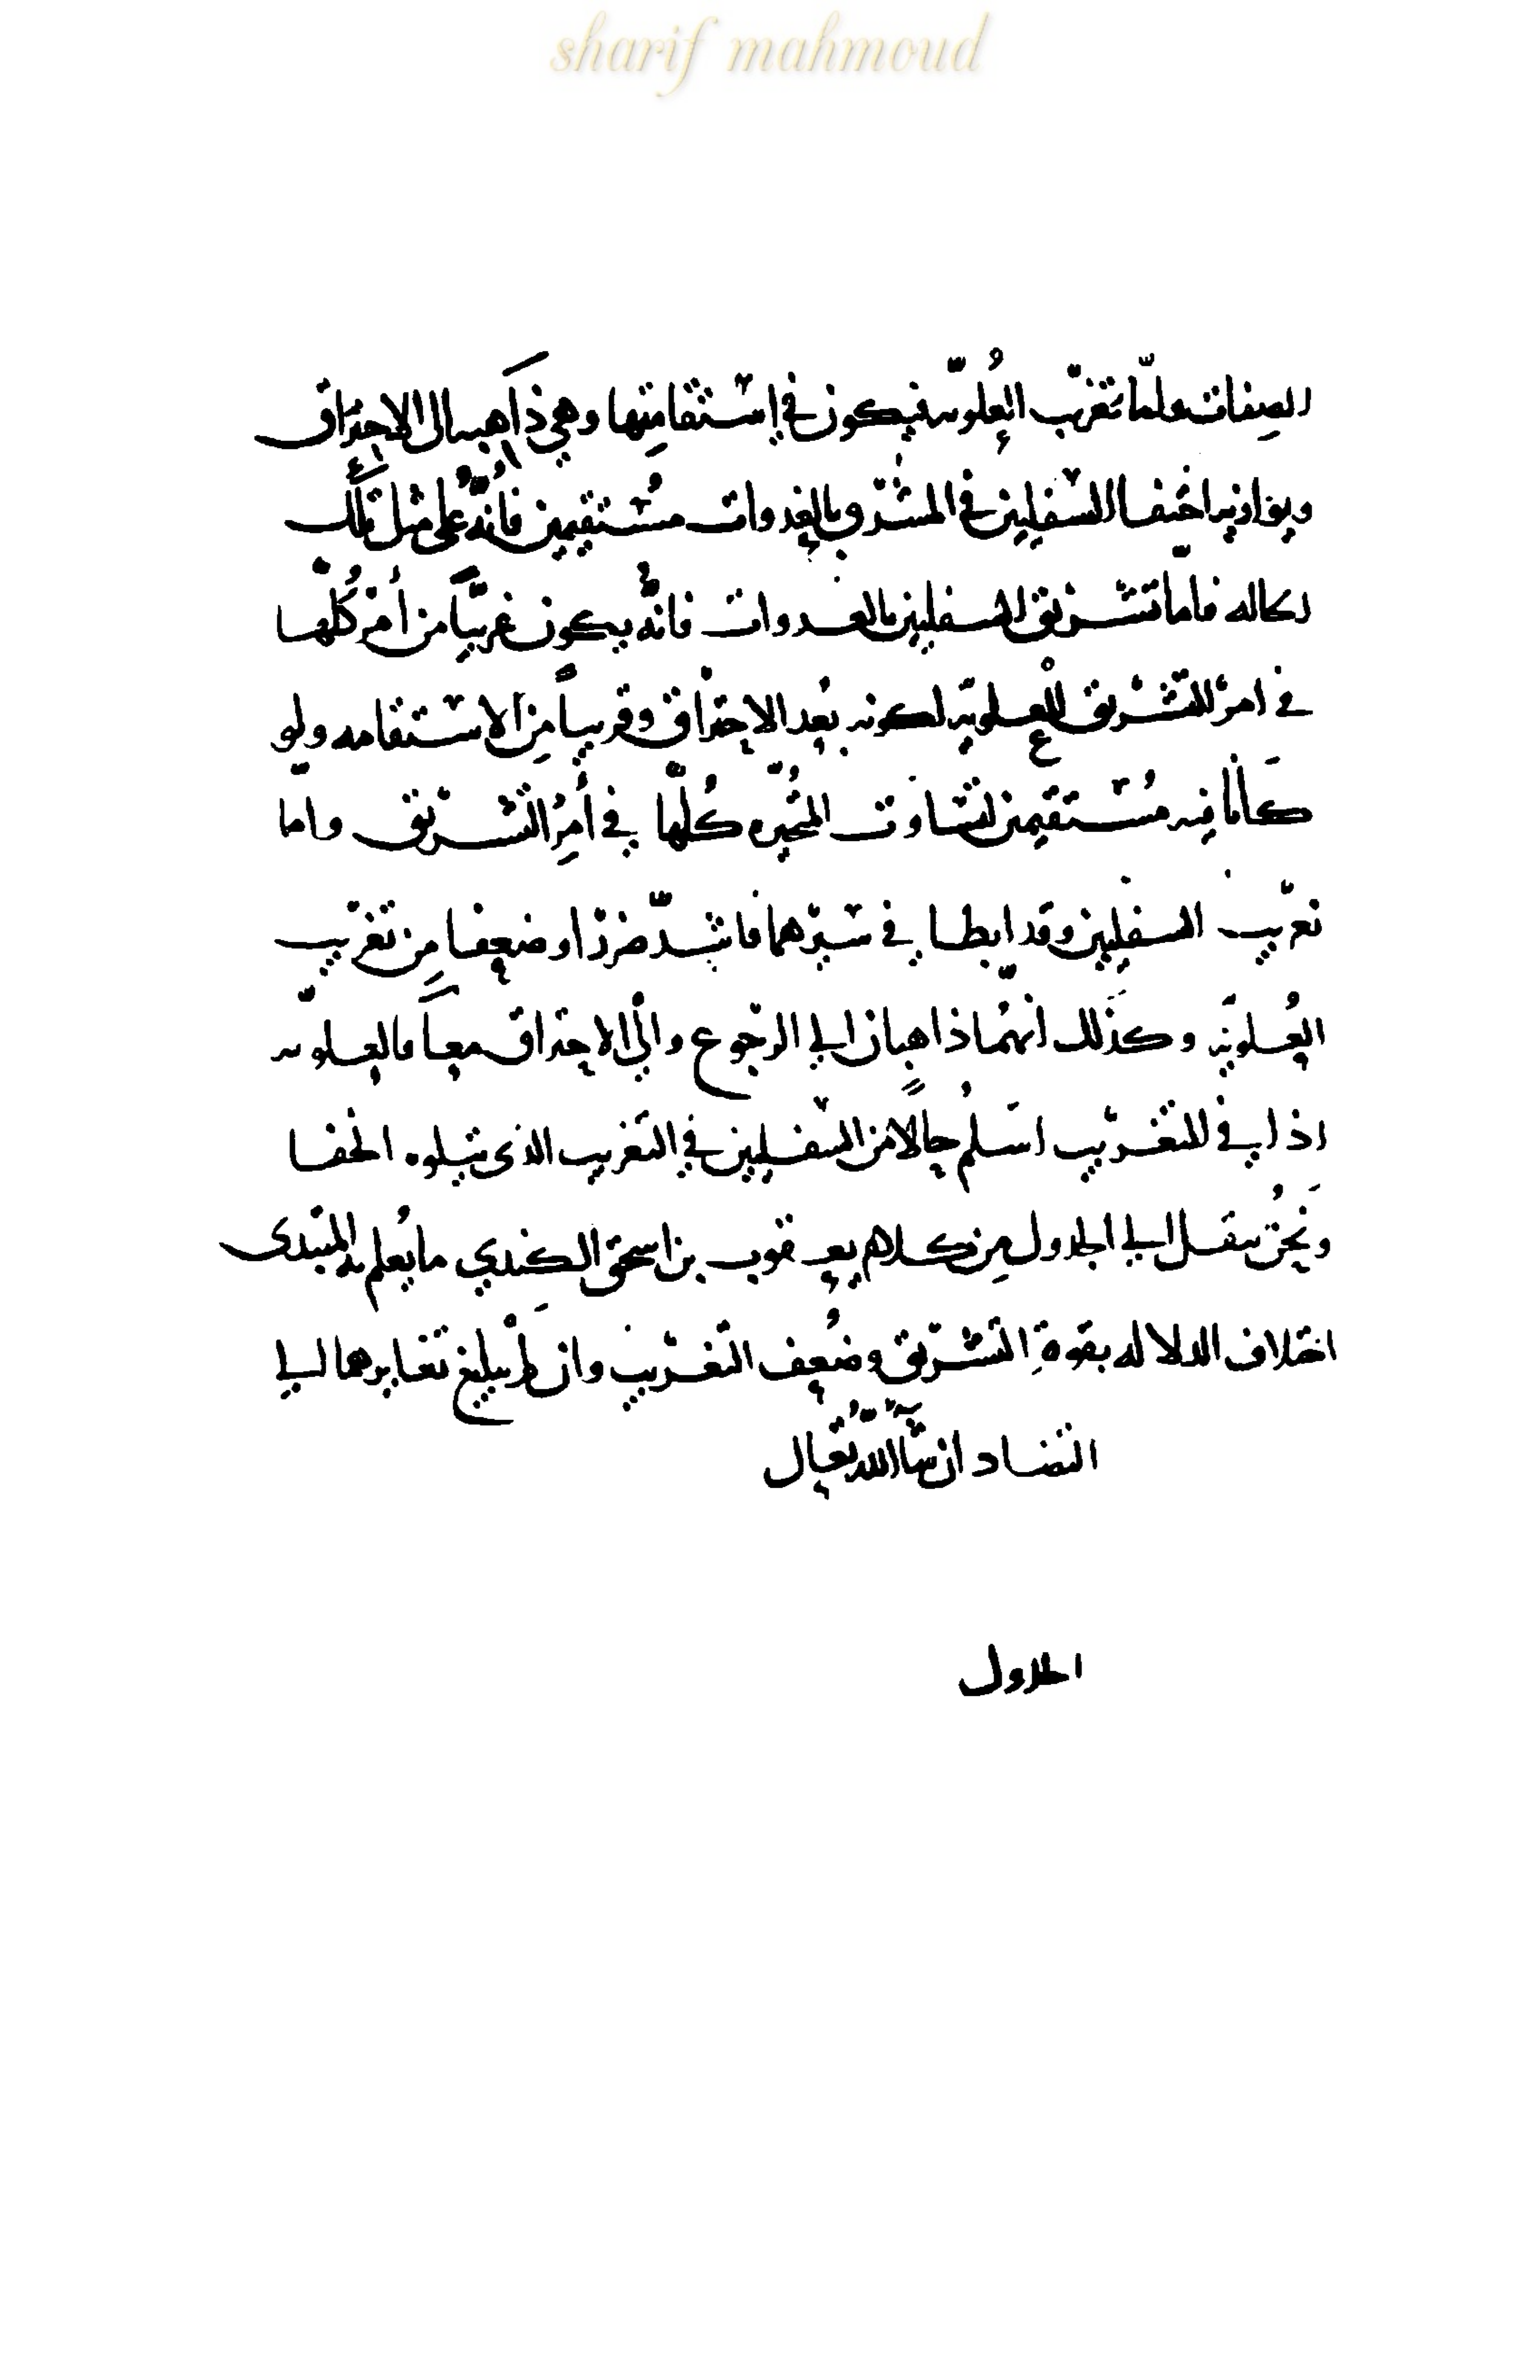 sharif mahmoud
الصِفات واما تغريب العُلويّه فيكون في إستقامتِها وهي ذَاهبه الى الاحتراق
ويوازيه اختفا السفليين في المشرق بالغدوات مُستقيمين فانّه على مثل تلك
الحاله فامّا تشريق السفليين بالغدوات فانّه يكون غريبًا من أمر كُلها
في امر التشريق للعلويّه لكونه بُعد الاحتراق وقريباً مِن الاستقامه ولو
كَانا فيه مُستقيمين لتساوَت المُتحيّره كُلّها في أمِرُ التشريق وامّا
تغريب السفليين وقد ابطا في سيرهما فاشدّ ضررًا وضعفا مِن تغريب
العُلويَّه وكذَلك انهُمّا ذاهبان الي الرجوع والي الاحتراق معاً فالعلويه
اذا في التغريب اسَلمُ حالًا من السفليين في التغريب الذى يتلوه الخفا
ونَحُن ننقل الي الجدول مِن كلام يعقوب بن اسحق الكندي ما يُعلم به المبتدى
اختلاف الدلاله بقوةِ التشريق وضُعف التغريب وان لم يبلغ تغايرهما الي
التضاد ان شآ اللّه تُعَالى
الجدول